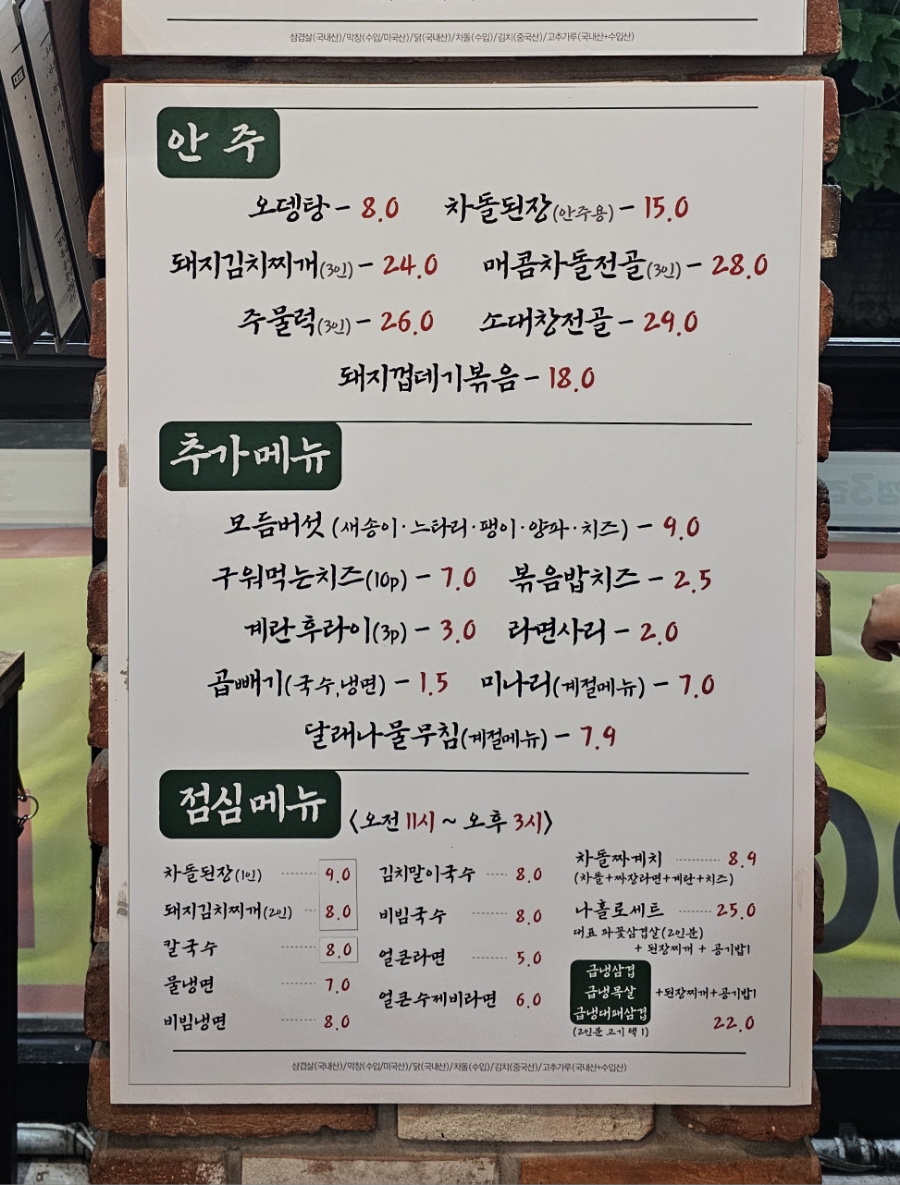 삼겹살(국내산)/막창(수입/미국산)/닭(국내산)/차돌(수입)/김치(중국산)/고추가루(국내산+수입산)
안 주
오뎅탕 - 8.0 차돌된장(안주용) - 15.0
돼지김치찌개(3인) - 24.0 매콤차돌전골(3인) - 28.0
주물럭(3인) - 26.0 소대창전골 - 29.0
돼지껍데기볶음 - 18.0
추가메뉴
모듬버섯 (새송이·느타리·팽이·양파·치즈) - 9.0
구워먹는치즈(10p) - 7.0 볶음밥치즈 - 2.5
계란후라이(3p) - 3.0 라면사리 - 2.0
곱빼기(국수,냉면) - 1.5 미나리(계절메뉴) - 7.0
달래나물무침(계절메뉴) - 7.9
점심메뉴 <오전 11시 ~ 오후 3시>
차돌된장(1인) 9.0
돼지김치찌개(2인) 8.0
칼국수 8.0
물냉면 7.0
비빔냉면 8.0
김치말이국수 8.0
비빔국수 8.0
얼큰라면 5.0
얼큰수제비라면 6.0
차돌짜계치 8.9
(차돌+짜장라면+계란+치즈)
나홀로세트 25.0
대표 파꽃삼겹살(2인분)
+ 된장찌개 + 공기밥1
급냉삼겹
급냉목살 +된장찌개+공기밥1
급냉대패삼겹
(2인분 고기 택 1) 22.0
삼겹살(국내산)/막창(수입/미국산)/닭(국내산)/차돌(수입)/김치(중국산)/고추가루(국내산+수입산)